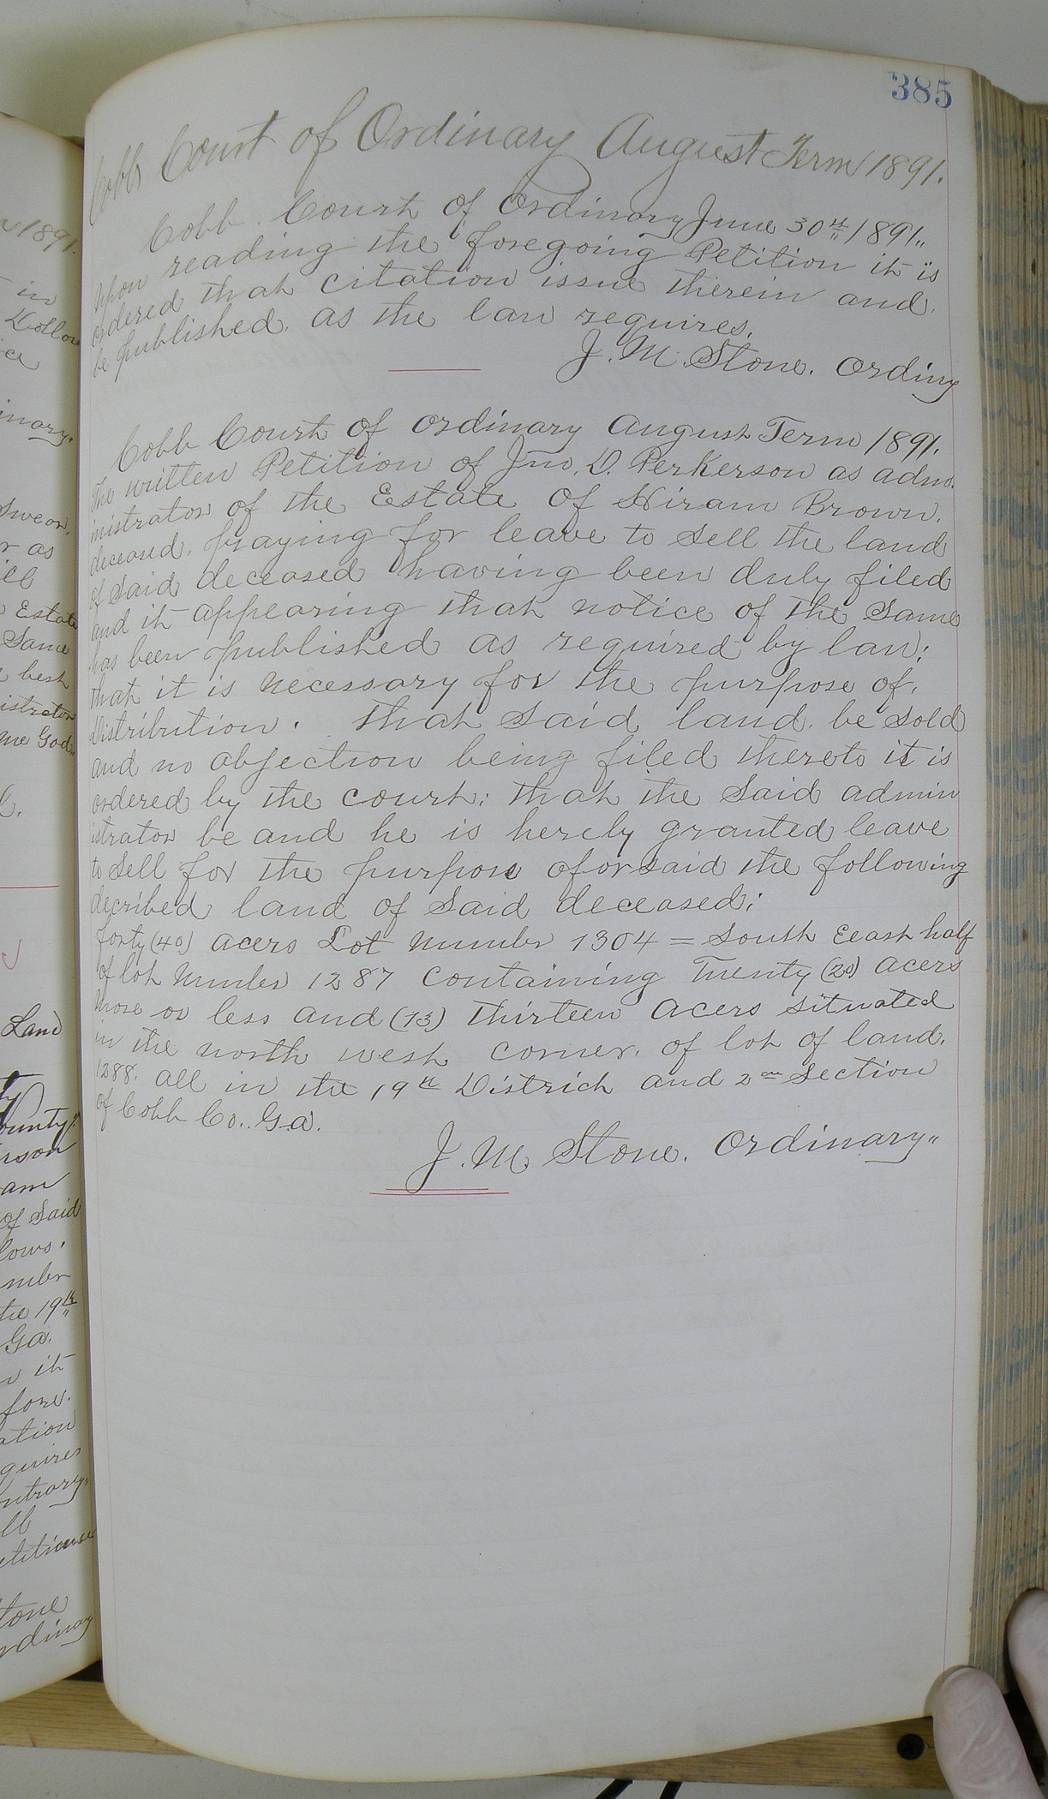 385
Cobb Court of Ordinary August Term 1891.
Cobb Court of Ordinary June 30th 1891.
Upon reading the foregoing Petition it is
ordered that citation issue therein and
be published as the law requires.
J. M. Stone. Ordiny
Cobb Court of Ordinary August Term 1891.
The written Petition of Jno. D. Perkerson as adm-
inistrator of the Estate of Hiram Brown.
deceased. praying for leave to Sell the land
of Said deceased having been duly filed
and it appearing that notice of the Same
has been published as required by law;
that it is Necessary for the purpose of.
Distribution. that Said land be Sold
and no objection being filed thereto it is
ordered by the court; that the Said admin
istrator be and he is hereby granted leave
to Sell for the purpose aforsaid the following
decribed land of Said deceased;
forty (40) acers Lot Number 1304 = South Eeast half
of lot Number 1287 Containing Twenty (20) acers
more or less and (13) thirteen acers situated
in the north west corner. of lot of land.
1288. all in the 19th District and 2nd Section
of Cobb Co. Ga.
J. M. Stone. Ordinary"
1891.
in
inary.
r as
Estate
Same
best
me God
Land
ounty
am
of Said
lows.
the 19th
Ga.
it
fore.
ation
quires
tone
rdinary